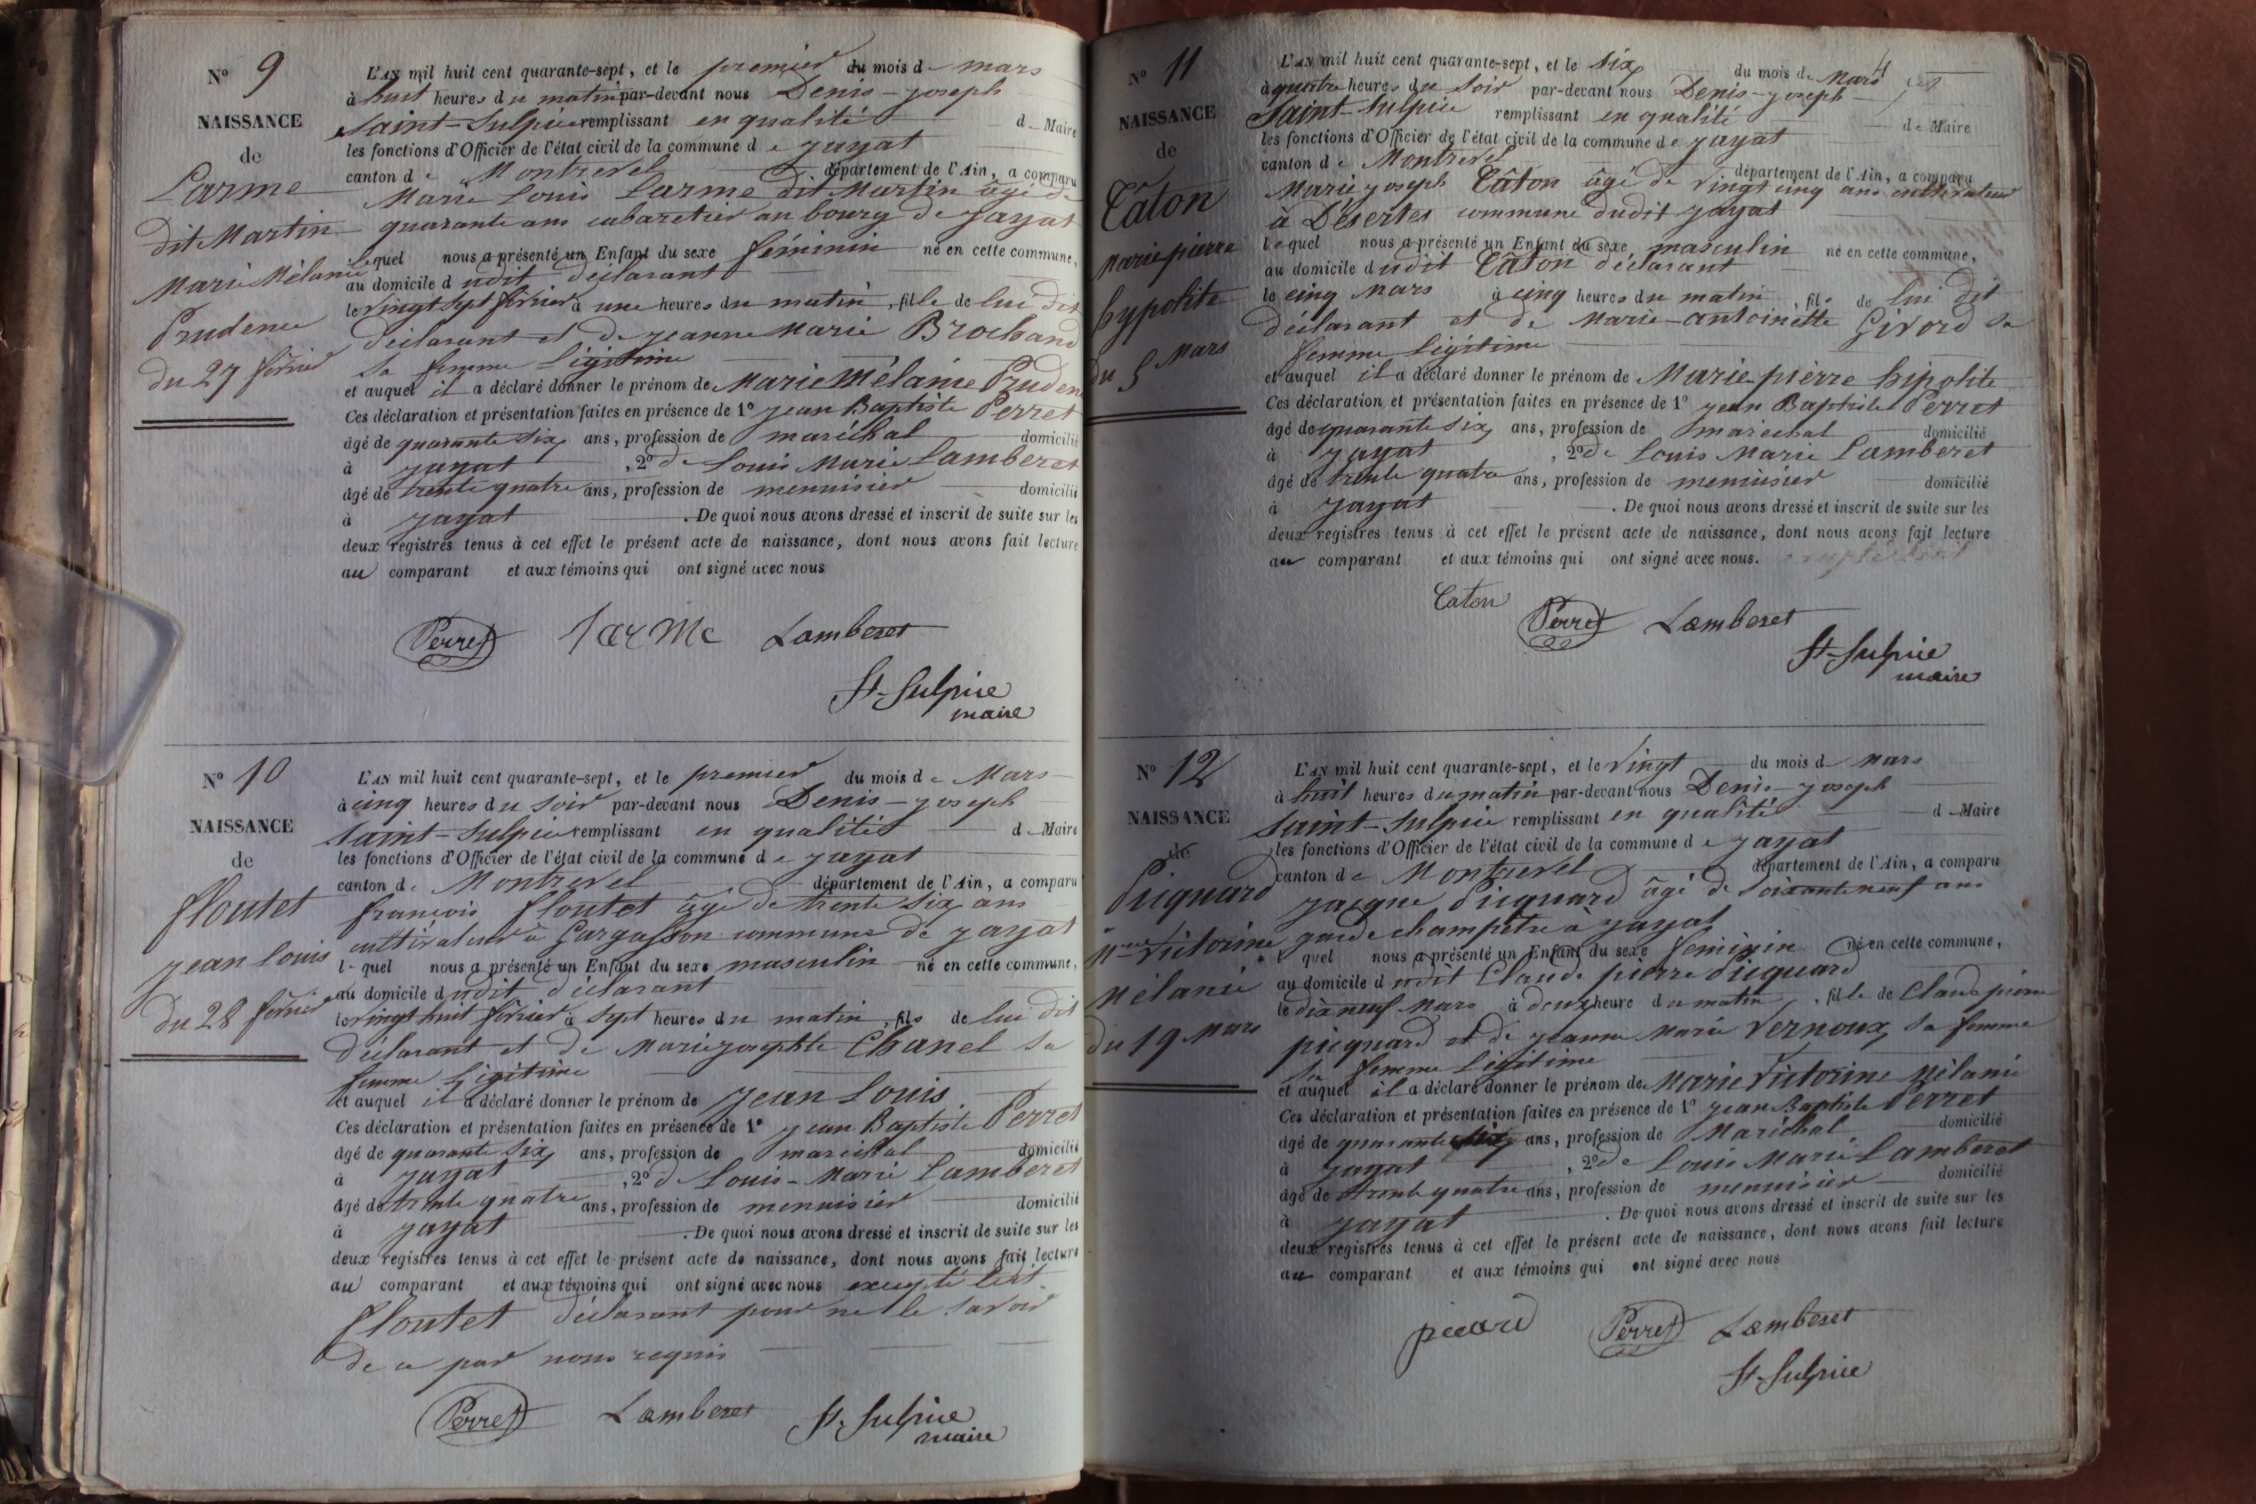 N° 9
NAISSANCE
de
Larme
dit Martin
Marie Mélanie
Prudence
du 27 février
L'AN mil huit cent quarante-sept, et le premier du mois de mars
à huit heures du matin par-devant nous Denis-joseph
Saint-Sulpice remplissant en qualité de Maire
les fonctions d'Officier de l'état civil de la commune de jayat
canton de Montrevel département de l'Ain, a comparu
Marie Louis Larme dit Martin âgé de
quarante ans cabaretier au bourg de jayat
lequel nous a présenté un Enfant du sexe féminin né en cette commune,
au domicile dudit déclarant
le vingt sept février à une heures du matin, fille de lui dit
déclarant et de jeanne Marie Brochand
sa femme légitime
et auquel il a déclaré donner le prénom de Marie Mélanie Pruden
Ces déclaration et présentation faites en présence de 1° jean Baptiste Perret
âgé de quarante six ans, profession de maréchal domicilié
à jayat, 2° de Louis Marie Lamberet
âgé de trente quatre ans, profession de menuisier domicilié
à jayat. De quoi nous avons dressé et inscrit de suite sur les
deux registres tenus à cet effet le présent acte de naissance, dont nous avons fait lecture
au comparant et aux témoins qui ont signé avec nous
Perret larme Lamberet
St-Sulpice
maire
N° 10
NAISSANCE
de
floutet
jean Louis
du 28 février
L'AN mil huit cent quarante-sept, et le premier du mois de Mars
à cinq heures du soir par-devant nous Denis-joseph
Saint-Sulpice remplissant en qualité de Maire
les fonctions d'Officier de l'état civil de la commune de jayat
canton de Montrevel département de l'Ain, a comparu
françois floutet âgé de trente six ans
cultivateur à Gargasson commune de jayat
lequel nous a présenté un Enfant du sexe masculin né en cette commune,
au domicile dudit déclarant
le vingt huit février à sept heures du matin, fils de lui dit
déclarant et de Marie josephte Chanel sa
femme légitime
et auquel il a déclaré donner le prénom de jean Louis
Ces déclaration et présentation faites en présence de 1° jean Baptiste Perret
âgé de quarante six ans, profession de maréchal domicilié
à jayat, 2° de Louis-Marie Lamberet
âgé de trente quatre ans, profession de menuisier domicilié
à jayat. De quoi nous avons dressé et inscrit de suite sur les
deux registres tenus à cet effet le présent acte de naissance, dont nous avons fait lecture
au comparant et aux témoins qui ont signé avec nous excepté ledt
floutet déclarant pour ne le savoir
de ce par nous requis
Perret Lamberet St-Sulpice
maire
4
N° 11
NAISSANCE
de
Câton
Marie pierre
hypolite
du 5 Mars
L'AN mil huit cent quarante-sept, et le six du mois de Mars
à quatre heures du soir par-devant nous Denis-joseph
Saint-Sulpice remplissant en qualité de Maire
les fonctions d'Officier de l'état civil de la commune de jayat
canton de Montrevel département de l'Ain, a comparu
Marie joseph Câton âgé de vingt cinq ans cultivateur
à Désertes commune dudit jayat
lequel nous a présenté un Enfant du sexe masculin né en cette commune,
au domicile dudit Câton déclarant
le cinq Mars à cinq heures du matin, fils de lui dit
déclarant et de Marie-antoinette Givord sa
femme légitime
et auquel il a déclaré donner le prénom de Marie pierre hipolite
Ces déclaration et présentation faites en présence de 1° jean Baptiste Perret
âgé de quarante six ans, profession de maréchal domicilié
à jayat, 2° de Louis Marie Lamberet
âgé de trente quatre ans, profession de menuisier domicilié
à jayat. De quoi nous avons dressé et inscrit de suite sur les
deux registres tenus à cet effet le présent acte de naissance, dont nous avons fait lecture
au comparant et aux témoins qui ont signé avec nous.
Caton Perret Lamberet
St-Sulpice
maire
N° 12
NAISSANCE
de
Picquard
Victorine
Mélanie
du 19 Mars
L'AN mil huit cent quarante-sept, et le vingt du mois de Mars
à huit heures du matin par-devant nous Denis-joseph
Saint-Sulpice remplissant en qualité de Maire
les fonctions d'Officier de l'état civil de la commune de jayat
canton de Montrevel département de l'Ain, a comparu
jacque Picquard âgé de soixante neuf ans
garde champêtre à jayat
lequel nous a présenté un Enfant du sexe féminin né en cette commune,
au domicile dudit Claude pierre Picquard
le dix neuf Mars à deux heure du matin, fille de Claude pierre
picquard et de jeanne Marie Vernoux, sa femme
sa femme légitime
et auquel il a déclaré donner le prénom de Marie Victorine Mélanie
Ces déclaration et présentation faites en présence de 1° jean Baptiste Perret
âgé de quarante six ans, profession de Maréchal domicilié
à jayat, 2° de Louis Marie Lamberet
âgé de trente quatre ans, profession de menuisier domicilié
à jayat. De quoi nous avons dressé et inscrit de suite sur les
deux registres tenus à cet effet le présent acte de naissance, dont nous avons fait lecture
au comparant et aux témoins qui ont signé avec nous
picard Perret Lamberet
St-Sulpice